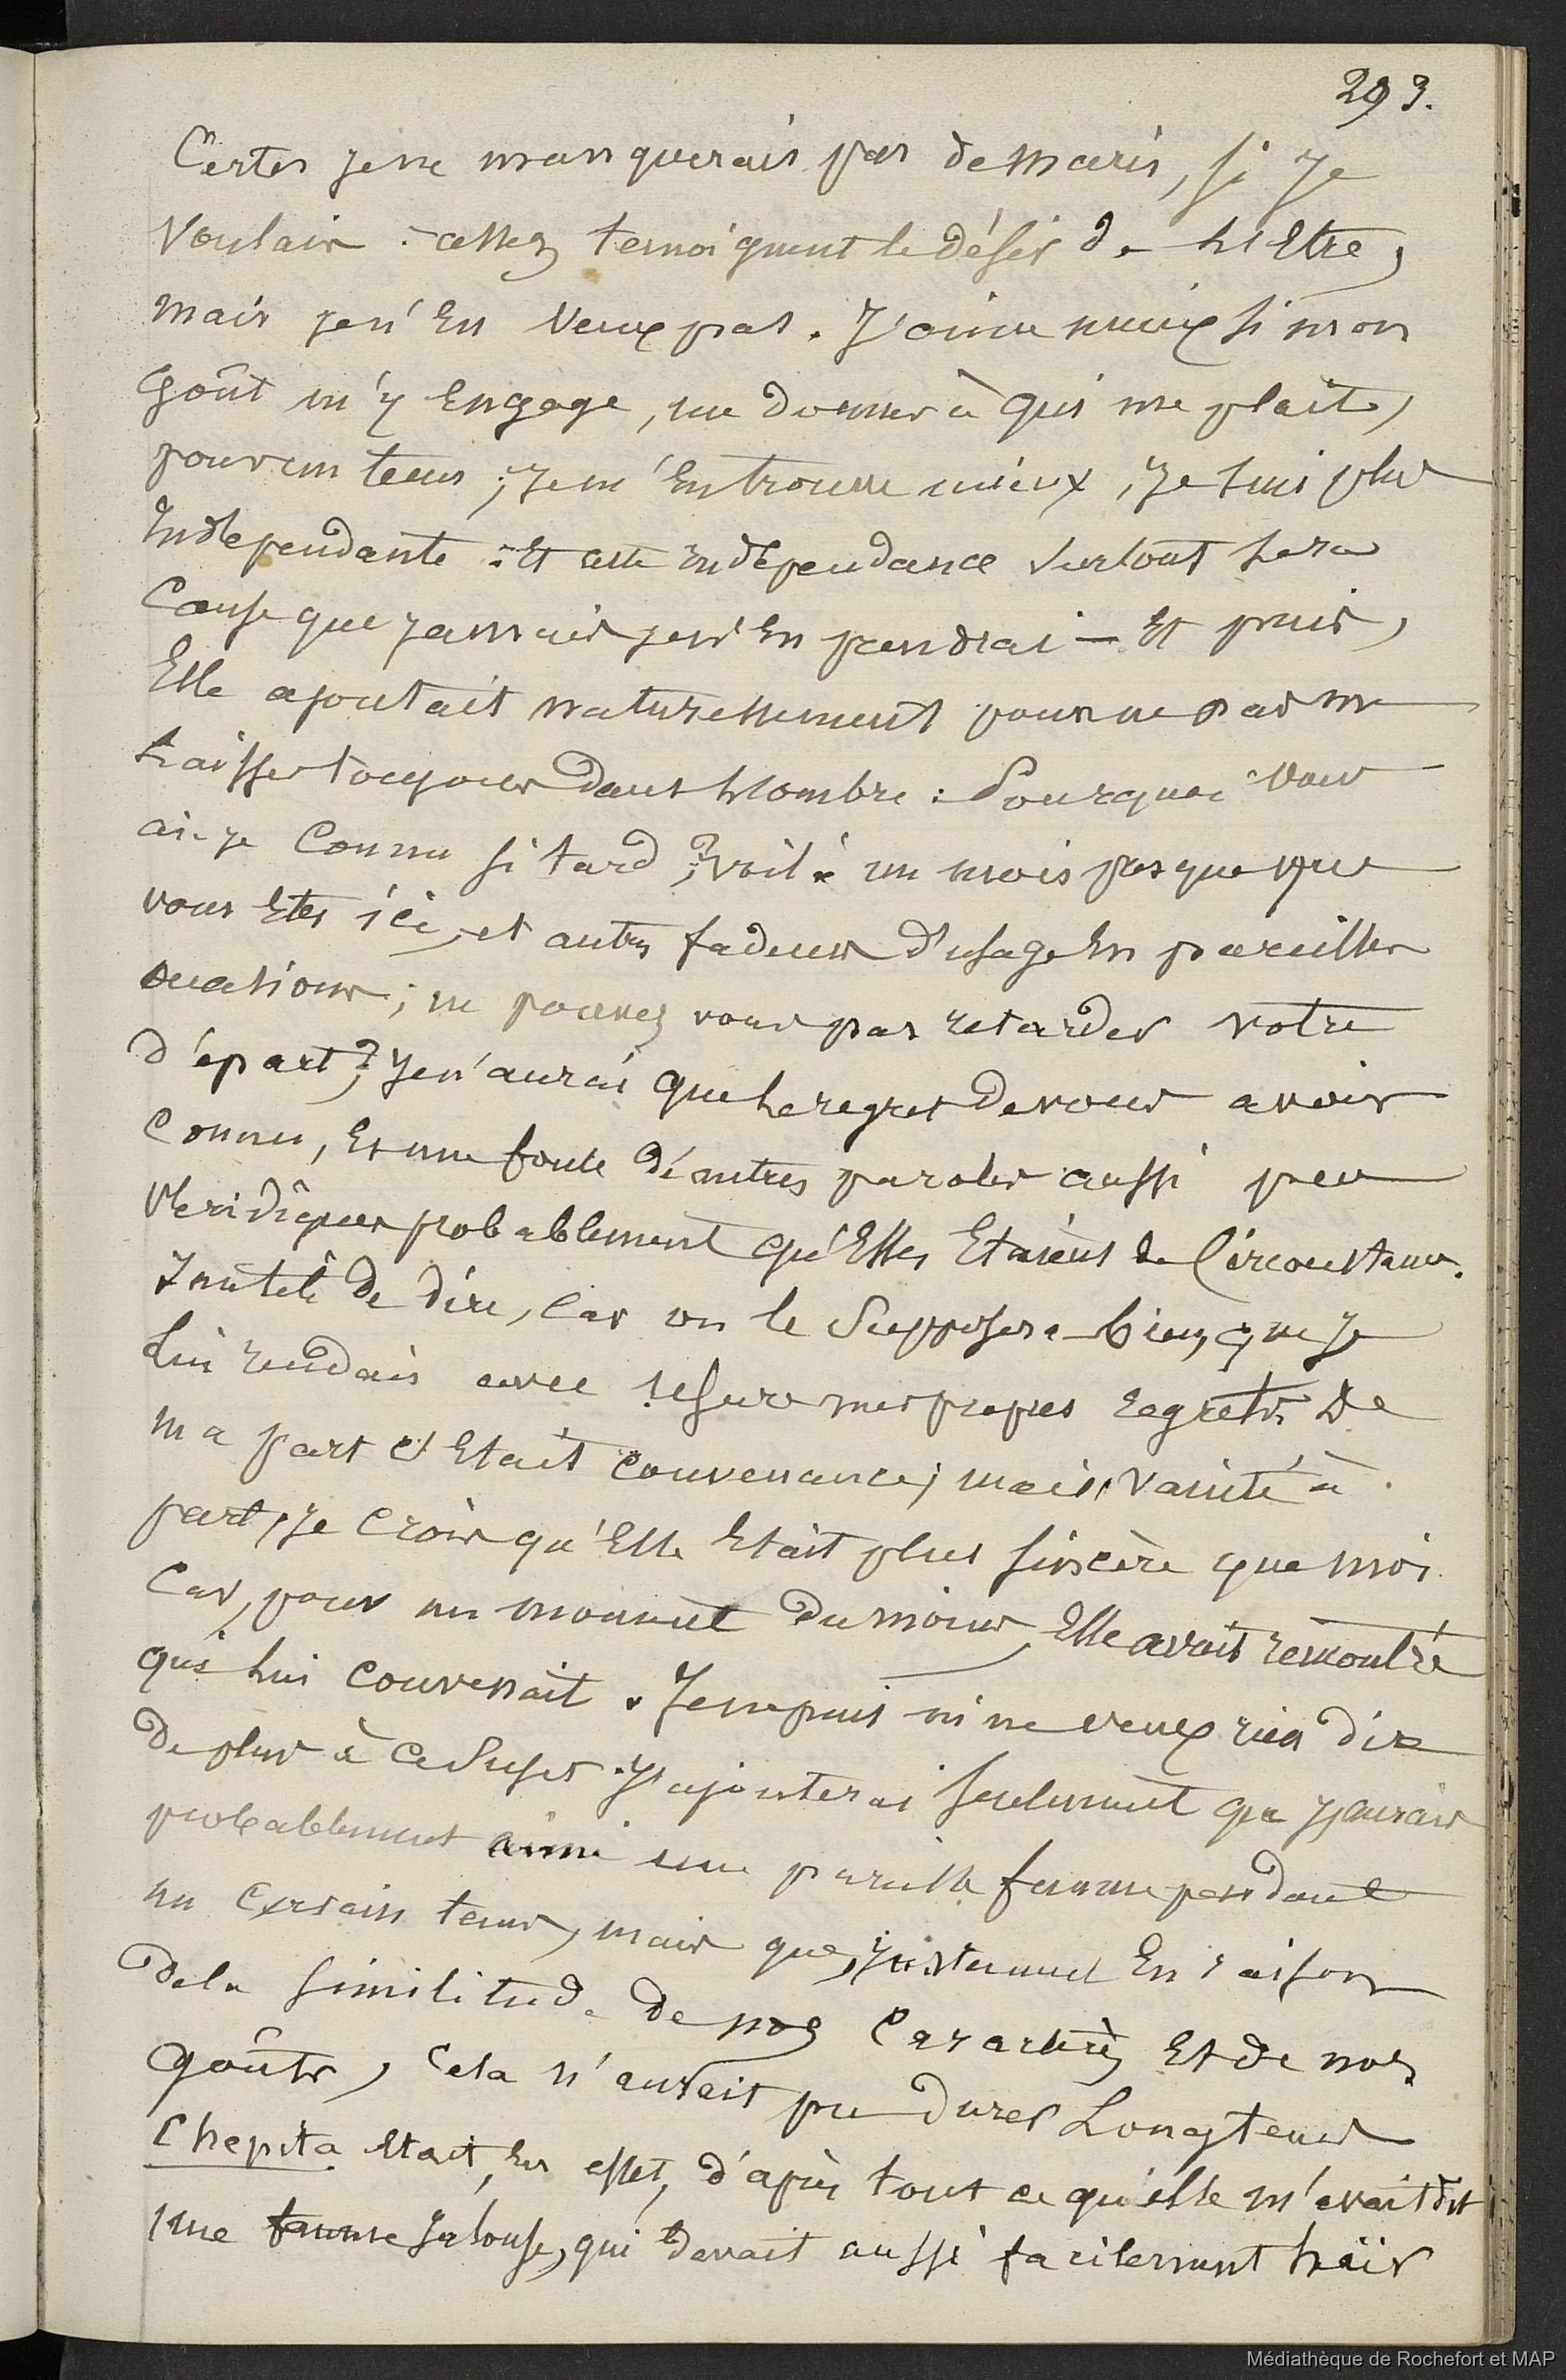 293.
Certes je ne manquerais pas de maris, si je
voulais : assez temoignent le désir de l'Etre,
mais je n'En veux pas. J'aime mieux si mon
goût m'y Engage, me donner à qui me plait,
pour un tems ; je m'En trouve mieux, je suis plus
Independante : Et cette indépendance surtout sera
Cause que jamais je n'En prendrai — Et puis,
Elle ajoutait naturellement pour ne pas me
laisser toujours dans l'ombre : Pourquoi vous
ai-je Connu si tard ? ; voilà un mois presque que
vous Etes ici, et autres fadeurs d'usage En pareilles
occasions ; ne pouvez vous pas retarder votre
départ ? ; Je n'aurai que le regret de vous avoir
Connu, Et une foule d'autres paroles aussi peu
Veridiques probablement qu'Elles Etaient de Circonstance.
Inutile de dire, Car on le Supposera bien, que je
lui rendais avec usure mes propres regrets. De
ma part c'Etait convenance ; mais, vanité à
part, je Crois qu'Elle Etait plus sincère que moi
Car, pour un moment du moins, Elle avait rencontré
qui lui Convenait. Je ne puis ni ne veux rien dire
de plus à ce Sujet. J'ajouterai seulement que j'aurais
probablement aimé une pareille femme pendant
un Certain tems, mais que, justement En raison
de la similitude de nos Caractères Et de nos
goûts, Cela n'aurait pu durer Longtems
Chepita Etait, En effet, d'après tout ce qu'elle m'avait dit
une femme jalouse, qui devait aussi facilement haïr
Médiathèque de Rochefort et MAP